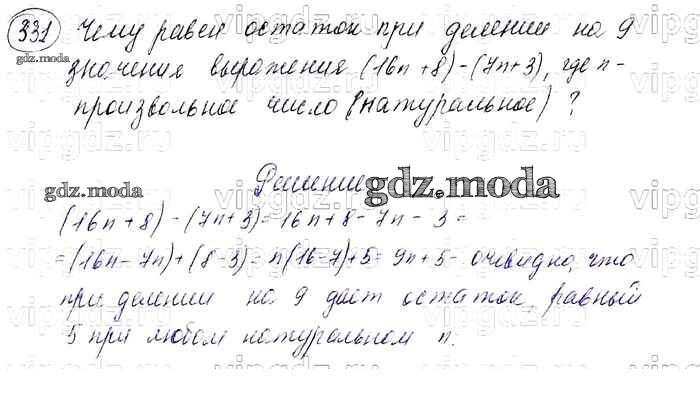 331 Чему равен остаток при делении на 9
gdz.moda
значения выражения (16n+8)-(7n+3), где n-
произвольное число (натуральное)?
vipgdz.ru
Решение
gdz.moda gdz.moda
(16n+8)-(7n+3)=16n+8-7n-3=
=(16n-7n)+(8-3)=n(16-7)+5=9n+5- очевидно, что
при делении на 9 даёт остаток, равный
5 при любом натуральном n.
vipgdz.ru